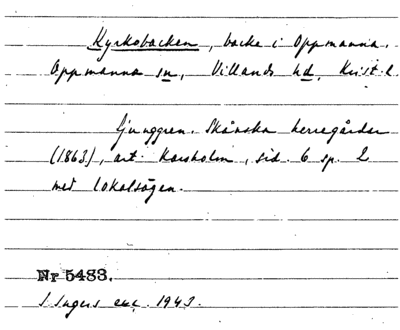 Kyrkobacken, backe i Oppmanna.
Oppmanna sn, Villands hd, Krist. l.
Ljunggren. Skånska herregårdar
(1863), art. Karsholm, sid. 6 sp. 2
med lokalsägen.
Nr 5483.
S Ingers exc. 1943.